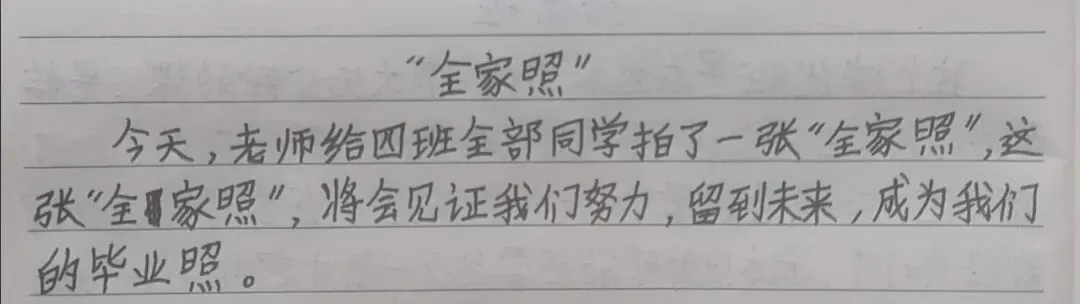 “全家照”
今天，老师给四班全部同学拍了一张“全家照”，这
张“全家照”，将会见证我们努力，留到未来，成为我们
的毕业照。